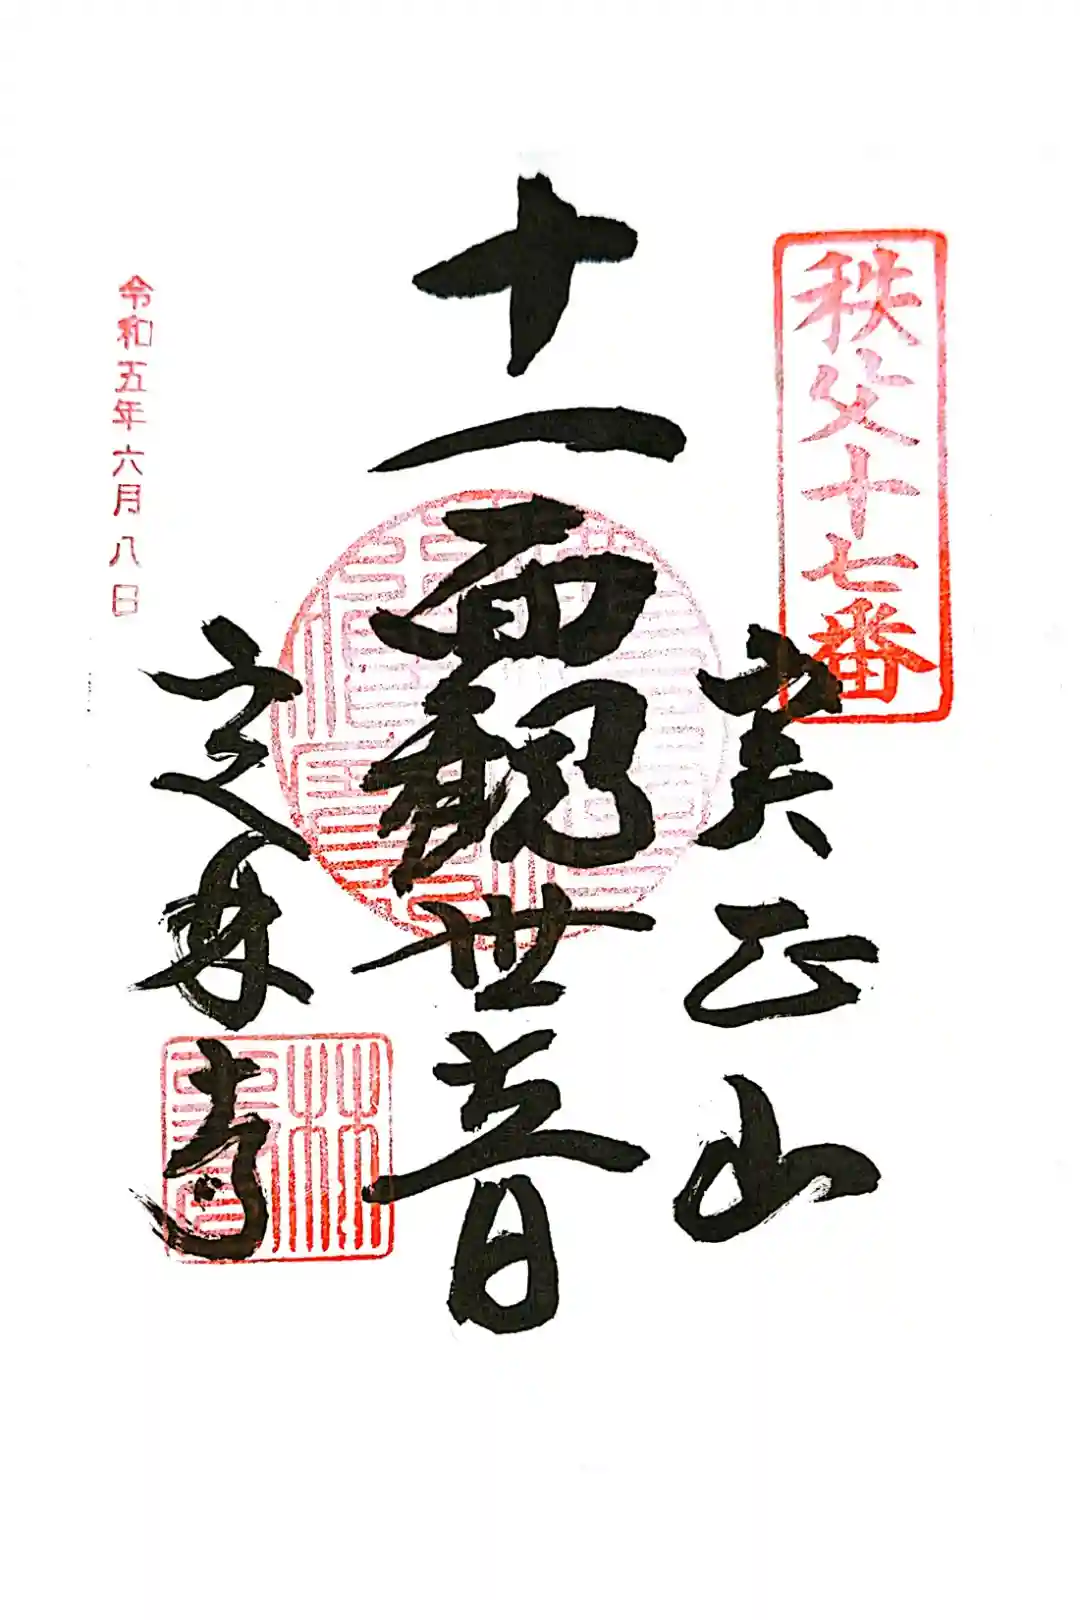 秩父十七番
実正山
十一面観世音
定林寺
令和五年六月八日